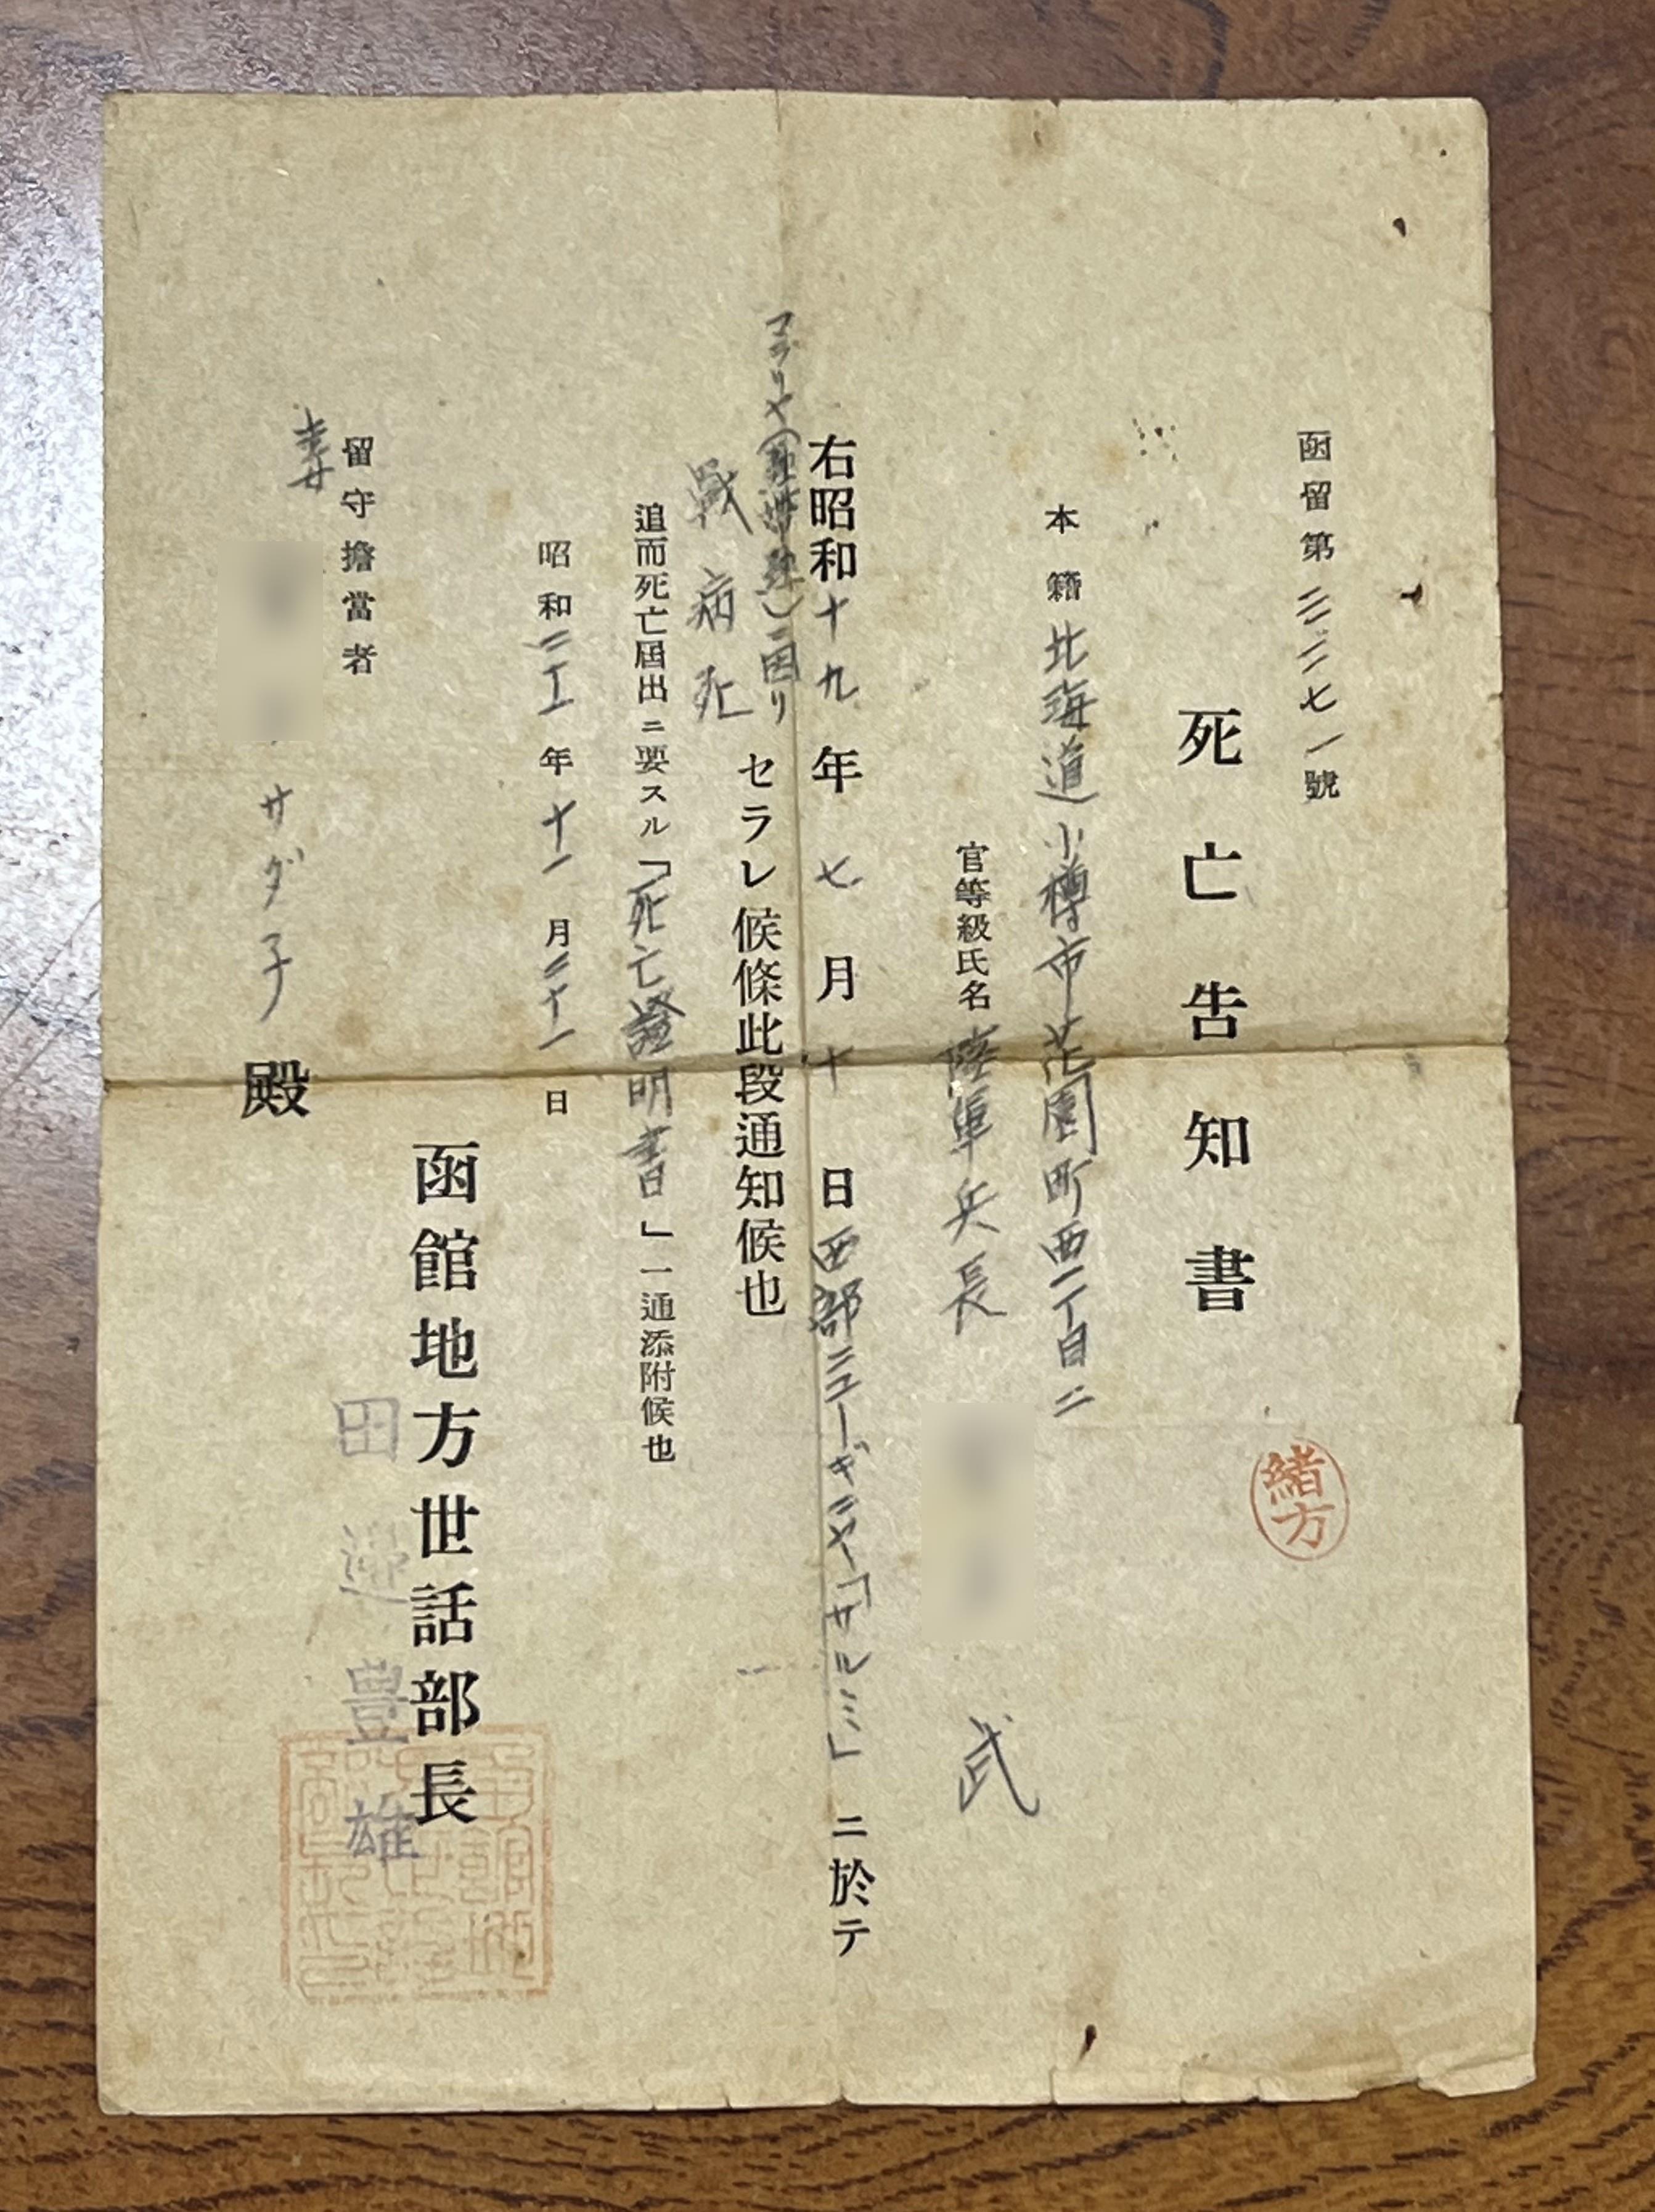 函留第三三七一號
死亡告知書
緒方
本籍 北海道小樽市花園町西一丁目二
官等級氏名 陸軍兵長 武
右昭和十九年七月十日西部ニューギニヤ「サルミ」ニ於テ
マラリヤ（ ）ニ因リ
戰病死セラレ候條此段通知候也
追而死亡屆出ニ要スル「死亡證明書」一通添附候也
昭和二十一年十一月二十一日
函館地方世話部長
田邊豊雄
留守擔當者
妻 サダ子 殿